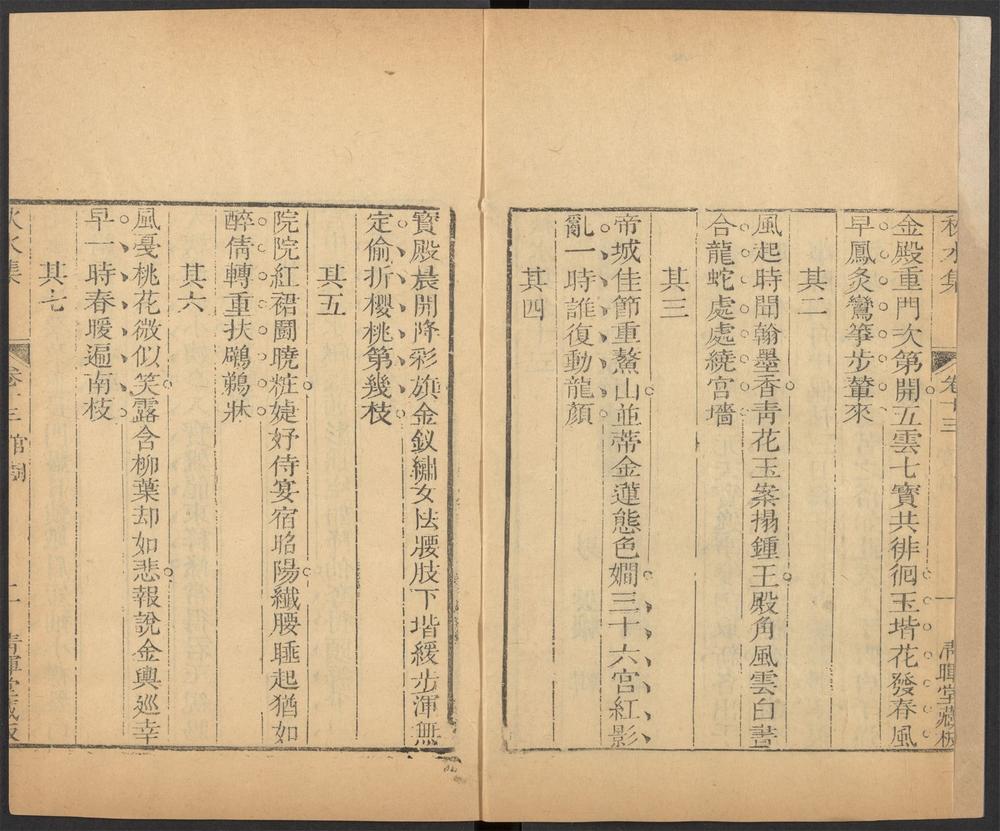 秋水集 卷十三 一 清暉堂藏板
金殿重門次第開五雲七寶共徘徊玉堦花發春風
早鳳炙鸞箏步輦來
其二
風起時聞翰墨香青花玉案搨鍾王殿角風雲白晝
合龍蛇處處繞宮墻
其三
帝城佳節重鰲山並蒂金蓮態色嫺三十六宮紅影
亂一時誰復動龍顏
其四
寶殿晨開降彩旗金釵繡女怯腰肢下堦緩步渾無
定偷折櫻桃第幾枝
其五
院院紅裙鬪曉粧婕妤侍宴宿昭陽纖腰睡起猶如
醉倩轉重扶鸚鵡牀
其六
風戞桃花微似笑露含柳葉却如悲報說金輿巡幸
早一時春暖遍南枝
其七
水集 卷十三 二